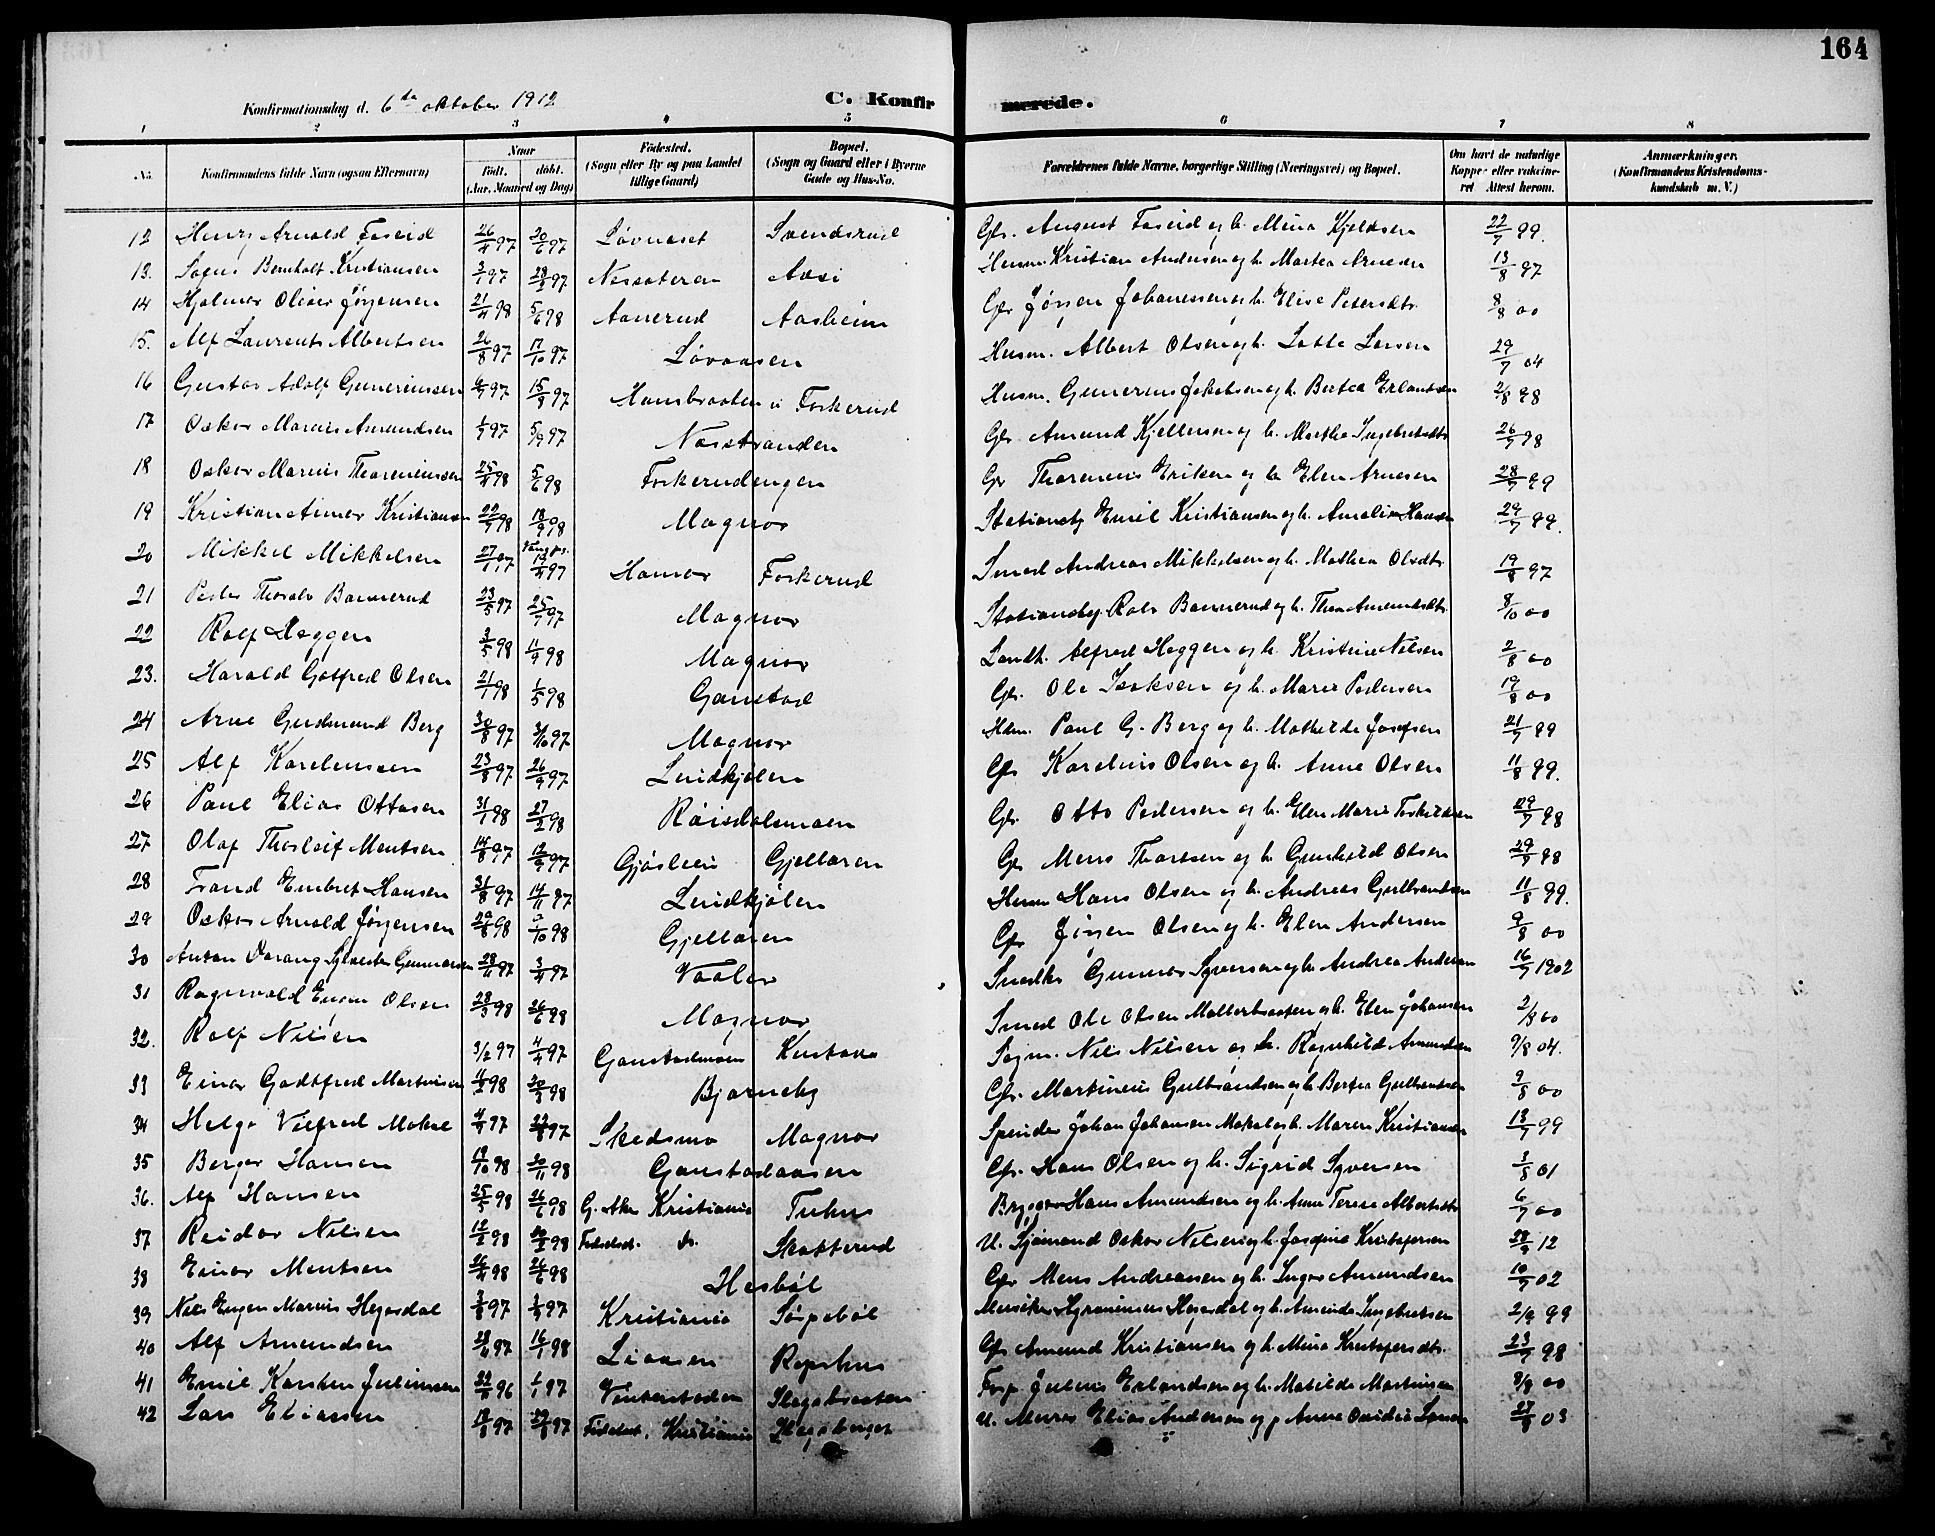 164
Konfirmationsdag d. 6te oktober 1912 C. Konfirmerede.
1 2 3 4 5 6 7 8
No. Konfirmandens fulde Navn (ogsaa Efternavn) Naar Født. døbt. (Aar, Maaned og Dag) Fødested. (Sogn eller By og paa Landet tillige Gaard) Bopæl. (Sogn og Gaard eller i Byerne Gade og Hus-No. Forældrenes fulde Navne, borgerlige Stilling (Næringsvei) og Bopæl. Om havt de naturlige Kopper eller vakcineret Attest herom. Anmærkninger. (Konfirmandens Kristendomskundskab m. V.)
12 Henry Arnold Foseid 26/4 97 20/6 97 Løvnaset Svendsrud Gbr. August Foseid og h. Mina Kjeldsen 22/7 99.
13. Bernholt Kristiansen 28/2 97 Husm. Kristian Andersen og h. Martea Arnesen 13/8 97
14 Hjalmar Oliver Jørgensen 21/4 98 5/6 98 Aanerud Aasheim Gbr Jørgen Johannesen og h. Elise Petersdtr. 8/8 00
15. Alf Laurents Albertsen 26/8 97 17/10 97 Løvaasen Husm. Albert Olsen og h. Lotte Larsen 29/7 04
16 Gustav Adolf Guneriussen 97 15/8 97 Hansbraaten u Foskerud Husm. Gunerius Jakobsen og h. Bertea Erlandsen 2/8 98
17 Oskar Marius Amundsen 1/7 97 5/9 97 Nasstranden Gbr. Amund Kjellersen og h. Marthe Ingebretsdtr 26/7 98
18 Oskar Marius Thoreniussen 25/4 98 5/6 98 Foskerudengen Gbr Thorenius Eriksen og h. Elen Arnesen 28/7 99
19 Kristian Aimar Kristiansen 22/7 98 18/9 98 Magnor Stationsbtj Emil Kristiansen og h. Amalie Hansen 29/7 99.
20 Mikkel Mikkelsen 27/1 97 Vang ps. 19/4 97 Hamar Foskerud Smed Andreas Mikkelsen og h. Mathea Olsdtr 19/8 97
21 Peder Thoralv Bannerud 23/5 97 25/7 97 Magnor Stationsbtj. Rolv Bannerud og h. Thea Amundsdtr. 8/10 00
22 Rolf Heggen 3/5 98 11/9 98 Magnor Landh. Alfred Heggen og h. Kristine Nilsen 2/8 00
23. Harald Gotfred Olsen 21/1 98 1/5 98 Gaustad Gbr. Ole Isaksen og h. Marie Pedersen 19/8 00
24 Arne Gudmund Berg 30/8 97 3/10 97 Magnor Hdm. Paul G. Berg og h. Mathilde Josefsen 21/7 99
25 Alf Kareliussen 23/8 97 26/9 97 Lindkjølen Gbr Karelius Olsen og h. Anne Olsen 11/8 99.
26 Paul Elias Ottosen 31/1 98 27/2 98 Røisdalsmoen Gbr. Otto Pedersen og h. Elen Marie Torkildsen 29/7 98
27 Olaf Thorleif Mentsen 14/8 97 12/9 97 Gjøslein Gjellaren Gbr Mens Thoresen og h. Gunhild Olsen 29/8 98
28 Trond Embret Hansen 31/8 97 14/11 97 Lindkjølen Husm Hans Olsen og h. Andrea Gulbrandsen 11/8 99.
29 Oskar Arnold Jørgensen 29/8 98 98 Gjellaren Gbr Jørgen Olsen og h. Elen Andersen 9/8 00
30 Anton Sylvester Gunnarsen 97 3/4 97 Vaaler Gunnar Syversen og h. Andrea Andersen 16/7 1902
31 Ragnvald Einar Olsen 28/3 98 26/6 98 Magnor Smed Ole Olsen og h. Elen Johansen 2/8 00
32. Rolf Nilsen 3/2 97 4/4 97 Gaustadmoen Kustona Nils Nilsen og h. Ragnhild Amundsen 9/8 04.
33 Einar Godtfred Martinsen 11/2 98 20/3 98 Bjørneby Gbr. Martineus Gulbrandsen og h. Bertea Gulbrandsen 9/8 00
34 Helge Vilfred Mokel 97 97 Skedsmo Magnor Spinder Johan Johansen Mokel og h. Maren Kristiansen 13/7 99
35 Berger Hansen 19/10 98 20/11 98 Gaustadaasen Gbr. Hans Olsen og h. Sigrid Syversen 3/8 01
36. Alf Hansen 25/5 98 26/6 98 G. Aker Kristiania Tuhus Brygger Hans Amundsen og h. Anne Terese Albertsdtr 6/7 00
37 Reidar Nilsen 12/2 98 98 Fødselsst. do. Skotterud U. Sjømand Oskar Nilsen og h. Josefine Kristofersen 22/9 12
38 Einar Mentsen 26/4 98 26/6 98 Hesbøl Gbr Mens Andreassen og h. Inger Amundsen 10/7 02
39 Nils Eugen Marius Hegesdal 97 97 Kristiania Sørpebøl Musiker Hyronimus Hegesdal og h. Amanda Ingebretsen 2/9 99
40 Alf Amundsen 97 16/1 98 Liaasen Rapshus Gbr Amund Kristiansen og h. Mina Kristofersdtr. 23/7 98
41 Emil Karsten Juliussen 96 1/1 97 Vinterstøden Skogsbraaten Julius Erlandsen og h. Matilde Martinsen 9/8 00
42 Lars Eliassen 97 97 Fødselsst. Kristiania Skogsberget U. Murer Elias Andersen og p Anne Larsen 27/8 03